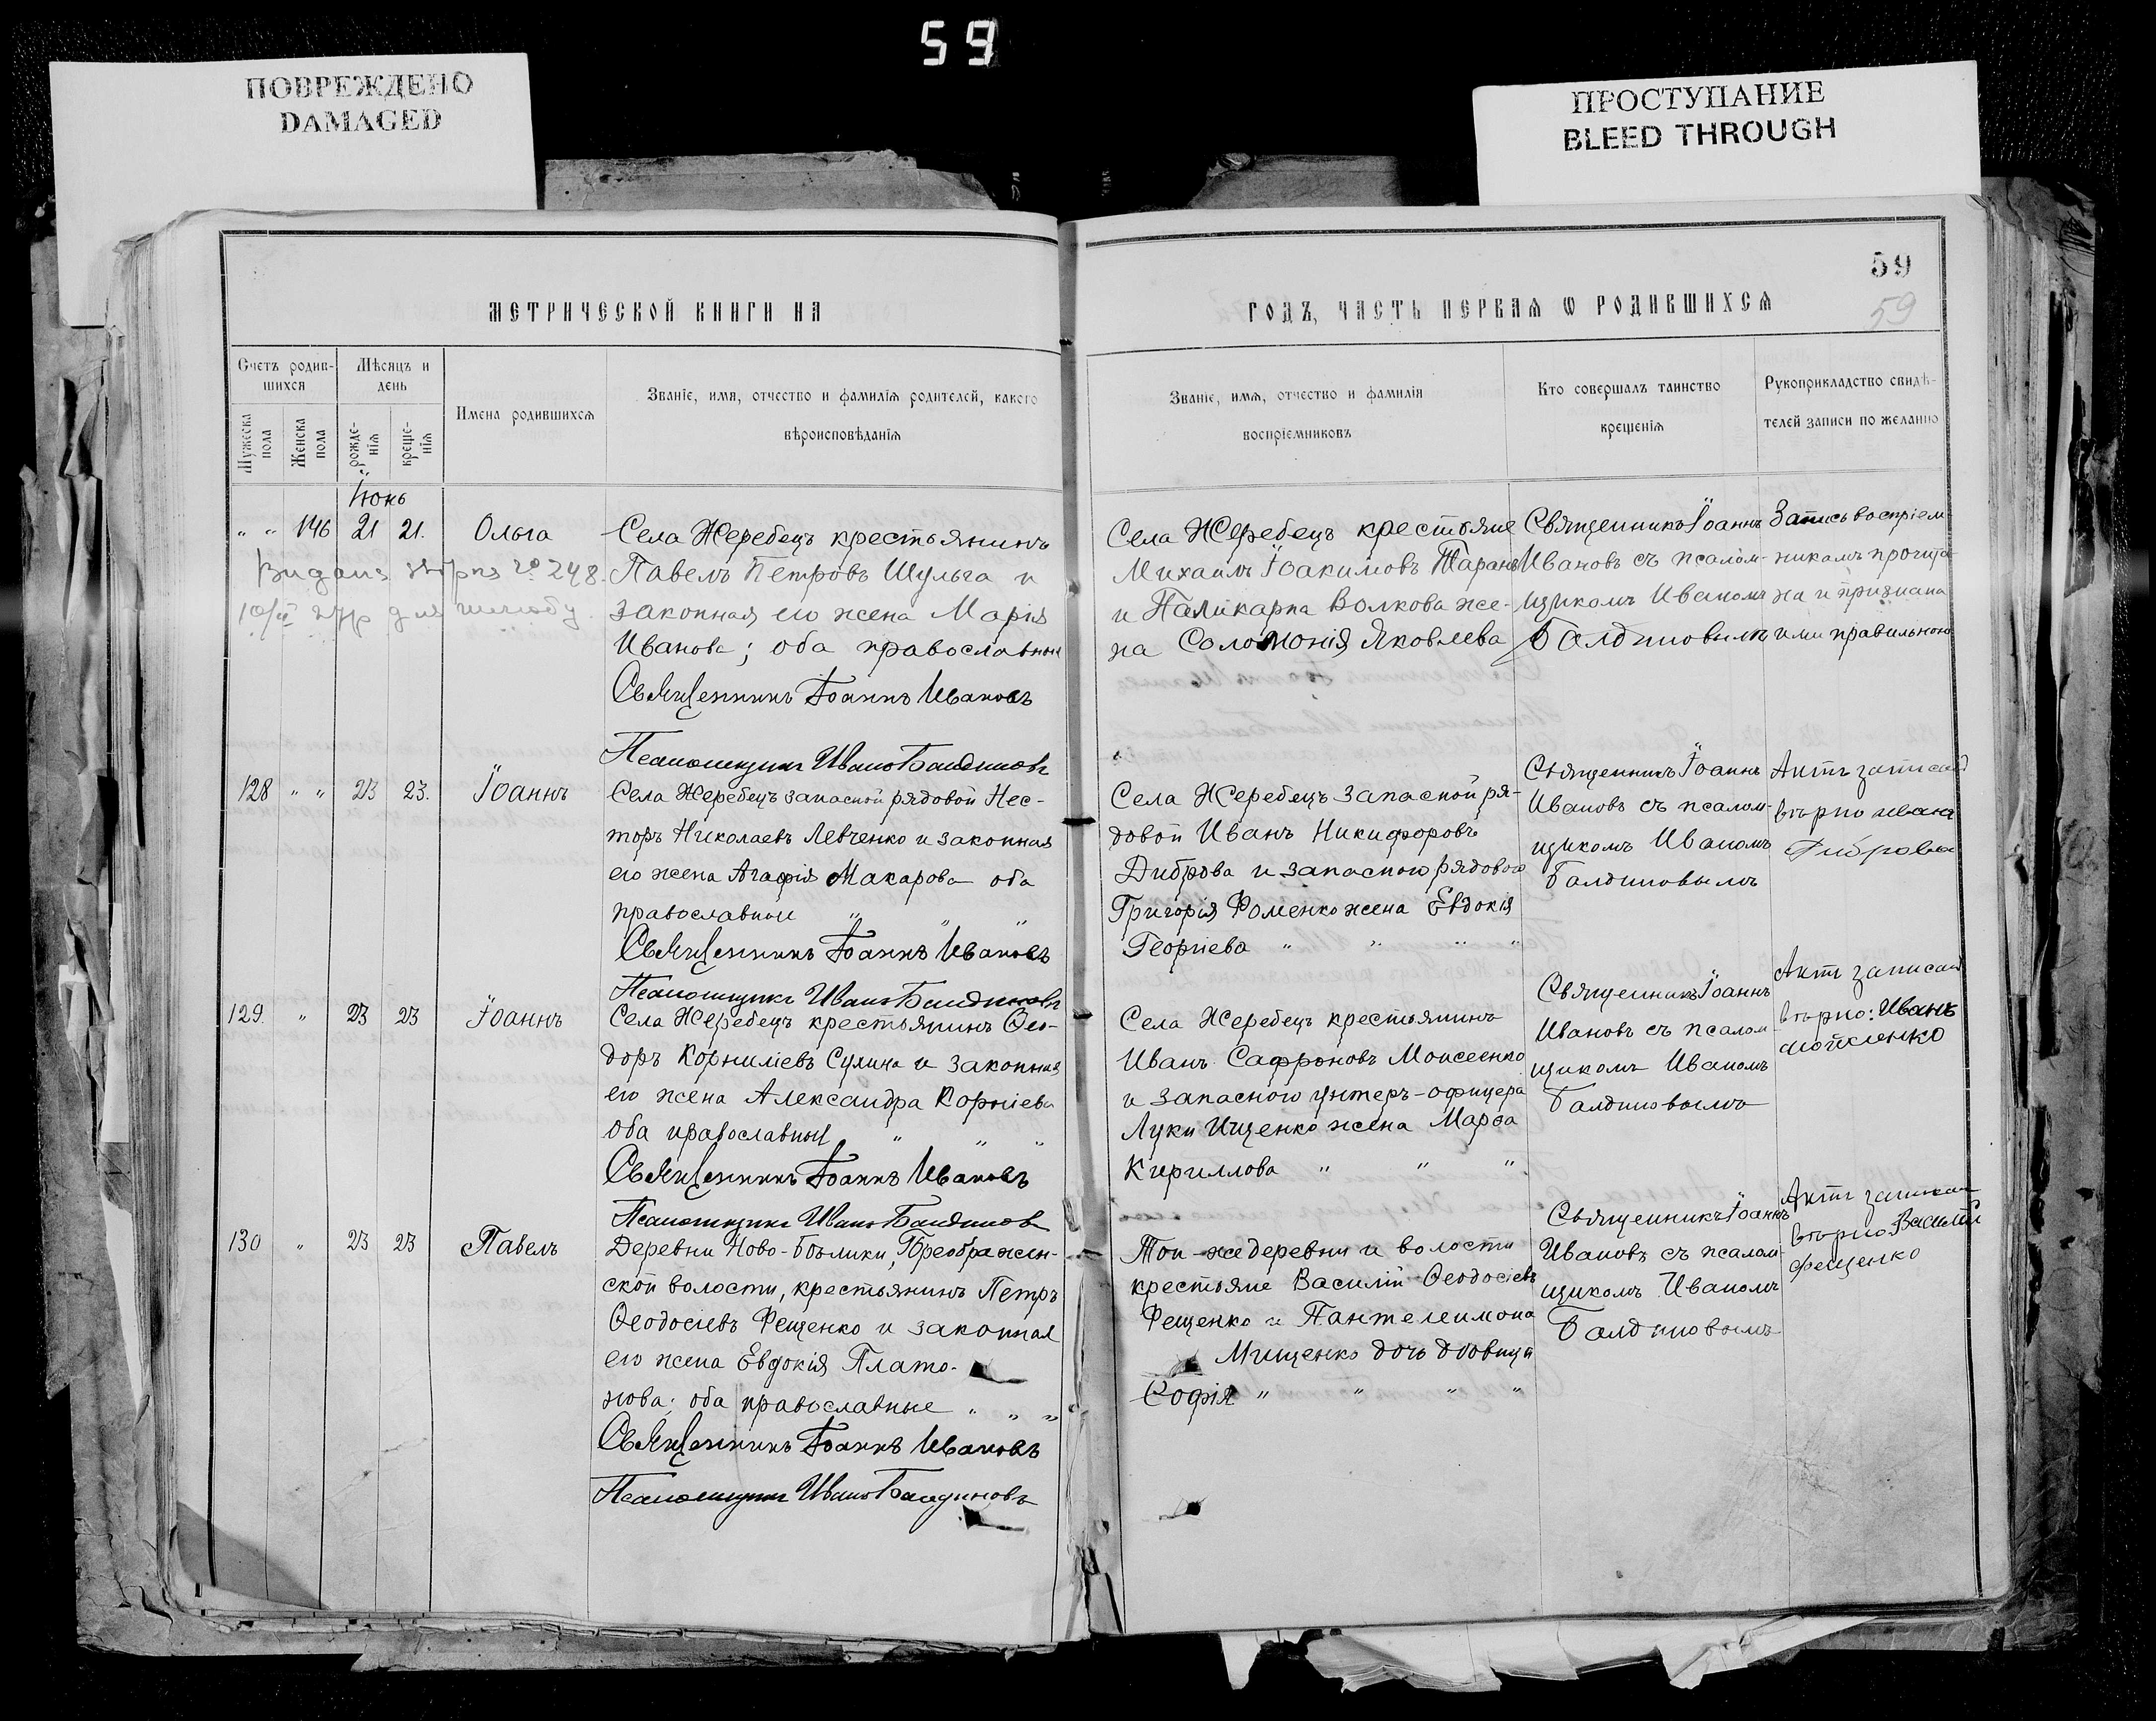 59
ПОВРЕЖДЕНО
DAMAGED
ПРОСТУПАНИЕ
BLEED THROUGH
МЕТРИЧЕСКОЙ КНИГИ НА
Счетъ родив-
шихся
Мѣсяцъ и
день
Мужеска
пола
Женска
пола
рожде-
нія
креще-
нія
Имена родившихся
Званіе, имя, отчество и фамилія родителей, какого
вѣроисповѣданія
Іюнь
" " 146 21 21. Ольга
248.
Села Жеребецъ крестьянинъ
Павелъ Петровъ Шульга и
законная его жена Марія
Иванова; оба православные
Священникъ Іоаннъ Ивановъ
Псаломщикъ Иванъ Балдиновъ
128 " " 23 23. Іоаннъ
Села Жеребецъ запасной рядовой Нес-
торъ Николаевъ Левченко и законная
его жена Агафія Макарова оба
православные " " "
Священникъ Іоаннъ Ивановъ
Псаломщикъ Иванъ Балдиновъ
129. " 23 23 Іоаннъ
Села Жеребецъ крестьянинъ Ѳео-
доръ Корниліевъ Сулима и законная
его жена Александра Корніева
оба православные " " "
Священникъ Іоаннъ Ивановъ
Псаломщикъ Иванъ Балдиновъ
130 " 23 23 Павелъ
Деревни Ново- Преображен-
ской волости, крестьянинъ Петръ
Ѳеодосіевъ Фещенко и законная
его жена Евдокія Плато-
нова; оба православные " " "
Священникъ Іоаннъ Ивановъ
Псаломщикъ Иванъ Балдиновъ
59
59
ГОДЪ, ЧАСТЬ ПЕРВАЯ Ѡ РОДИВШИХСЯ
Званіе, имя, отчество и фамилія
воспріемниковъ
Кто совершалъ таинство
крещенія
Рукоприкладство свидѣ-
телей записи по желанію
Села Жеребецъ крестьяне
Михаилъ Іоакимовъ Таранъ
и Паликарпа Волкова же-
на Соломонія Яковлева
Священникъ Іоаннъ
Ивановъ съ псалом-
щикомъ Иваномъ
Балдиновымъ
Запись воспріем-
никамъ прочита-
на и признана
ими правильною
Села Жеребецъ запасной ря-
довой Иванъ Никифоровъ
Диброва и запасного рядового
Григорія Фоменко жена Евдокія
Георгіева " " " "
Священникъ Іоаннъ
Ивановъ съ псалом-
щикомъ Иваномъ
Балдиновымъ
Актъ записанъ
вѣрно Ивана
Диброва
Села Жеребецъ крестьянинъ
Иванъ Сафроновъ Моисеенко
и запасного унтеръ-офицера
Луки Ищенко жена Марѳа
Кириллова " " "
Священникъ Іоаннъ
Ивановъ съ псалом-
щикомъ Иваномъ
Балдиновымъ
Актъ записанъ
вѣрно: Иванъ
Той-же деревни и волости
крестьяне Василій Ѳеодосіевъ
Фещенко и Пантелеимона
Мищенко дочь дѣвица
Софія " " " "
Священникъ Іоаннъ
Ивановъ съ псалом-
щикомъ Иваномъ
Балдиновымъ
Актъ записанъ
вѣрно Василій
Фещенко